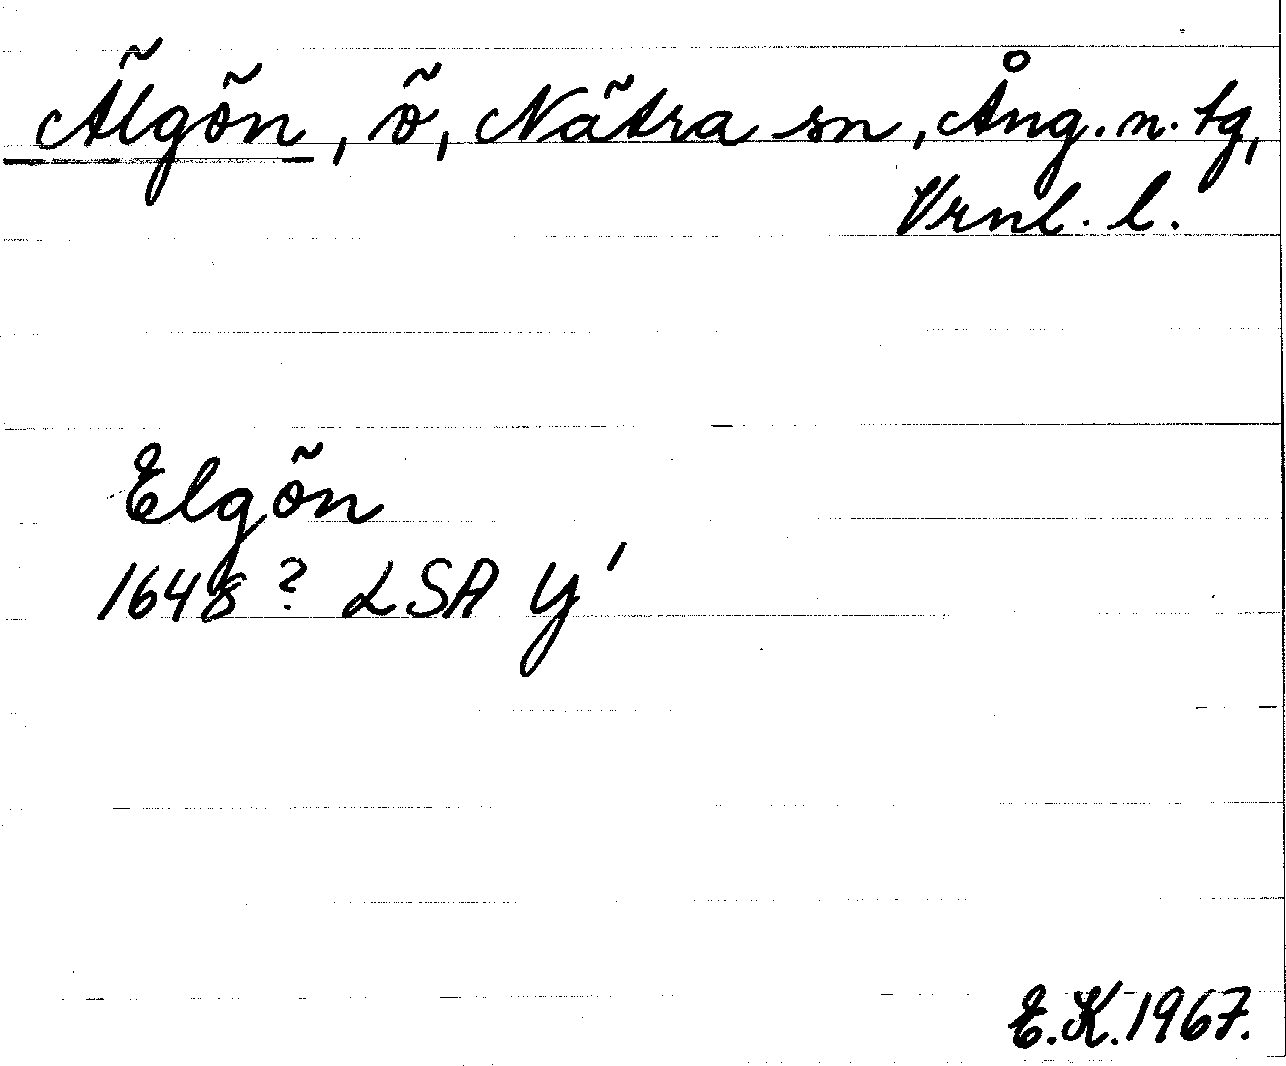 Älgön, ö, Nätra sn, Ång. n. tg,
Vrnl. l.
Elgön
1648? LSA Y'
E.K. 1967.